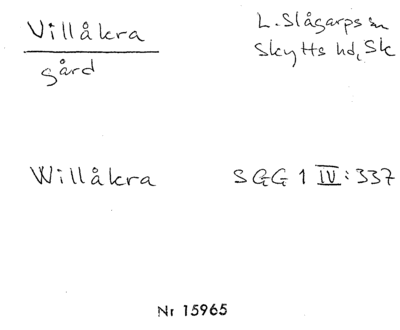 Villåkra
gård
L. Slågarps sn
Skytts hd, Sk
Willåkra
SGG 1 IV: 337
Nr 15965